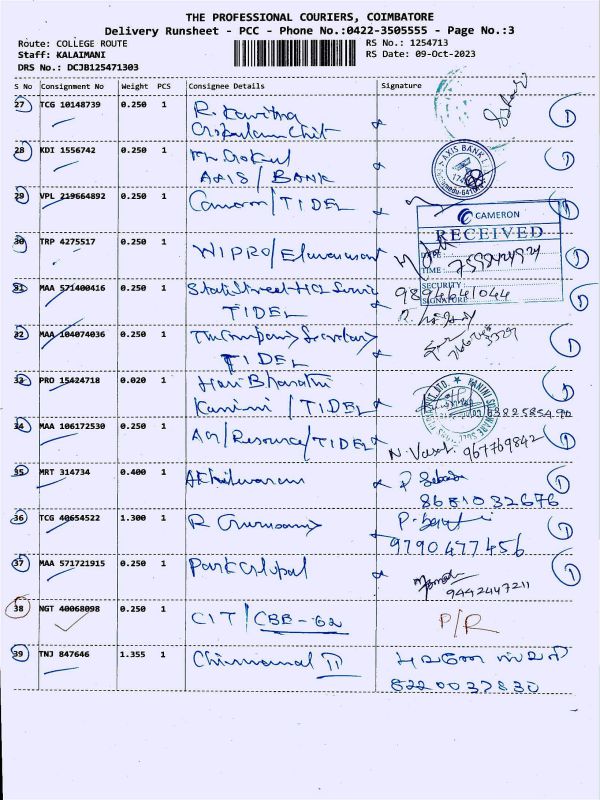 THE PROFESSIONAL COURIERS, COIMBATORE
Delivery Runsheet - PCC - Phone No.:0422-3505555 - Page No.:3
Route: COLLEGE ROUTE
RS No.: 1254713
Staff: KALAIMANI
RS Date: 09-Oct-2023
DRS No.: DCJB125471303
S No Consignment No Weight PCS Consignee Details Signature
27 TCG 10148739 0.250 1 R. Kavitha
Gokulam Chit
28 KDI 1556742 0.250 1 Gokul
AXIS / BANK
AXIS BANK
29 VPL 219664892 0.250 1 Cameron / TIDEL
CAMERON
RECEIVED
DATE
TIME
SECURITY
SIGNATURE
30 TRP 4275517 0.250 1 WIPRO /
31 MAA 571400416 0.250 1 StateStreet HCL Service
TIDEL
9894441044
32 MAA 104074036 0.250 1 The Company Secretary
TIDEL
33 PRO 15424718 0.020 1 Hari Bharathi
Kanini / TIDEL
34 MAA 106172530 0.250 1 / Resource / TIDEL
967769842
35 MRT 314734 0.400 1
P
8681032676
36 TCG 40654522 1.300 1 R Gurusamy
9790477456
37 MAA 571721915 0.250 1 Park Global
9442447211
38 NGT 40068098 0.250 1 CIT / CBB - 62
P/R
39 TNJ 847646 1.355 1 Chinnamal II
8220037830